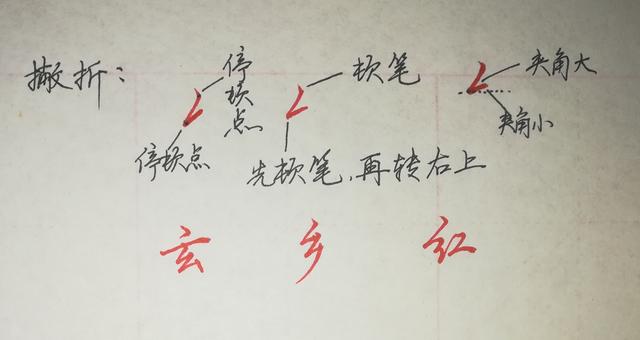 撇折：
停顿点
顿笔
夹角大
夹角小
停顿点
先顿笔，再转右上
玄 乡 红